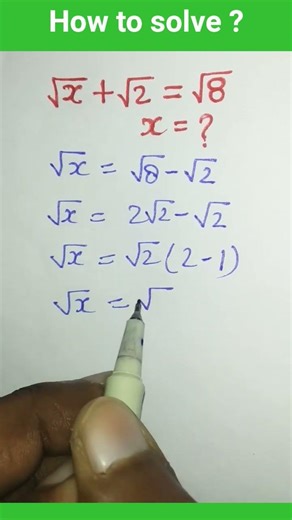 How to solve ?
√x + √2 = √8
x = ?
√x = √8 - √2
√x = 2√2 - √2
√x = √2 (2 - 1)
√x = √